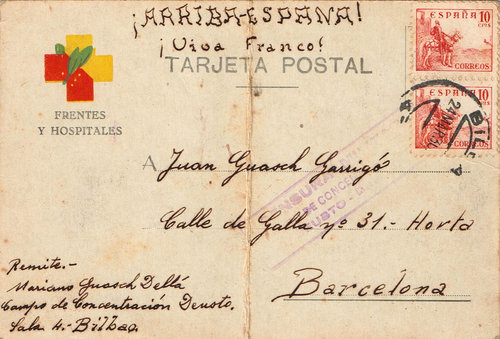 ¡ARRIBA-ESPAÑA!
¡Viva Franco!
TARJETA POSTAL
FRENTES
Y HOSPITALES
ESPAÑA 10
CTS
CORREOS
ESPAÑA 10
CTS
CORREOS
24 MAR
A Juan Guasch Garrigó
Calle de Galla nº 31.- Horta
Barcelona
DE CONCE
Remite.-
Mariano Guasch Dellá
Campo de Concentración Deusto.
Sala 4.- Bilbao